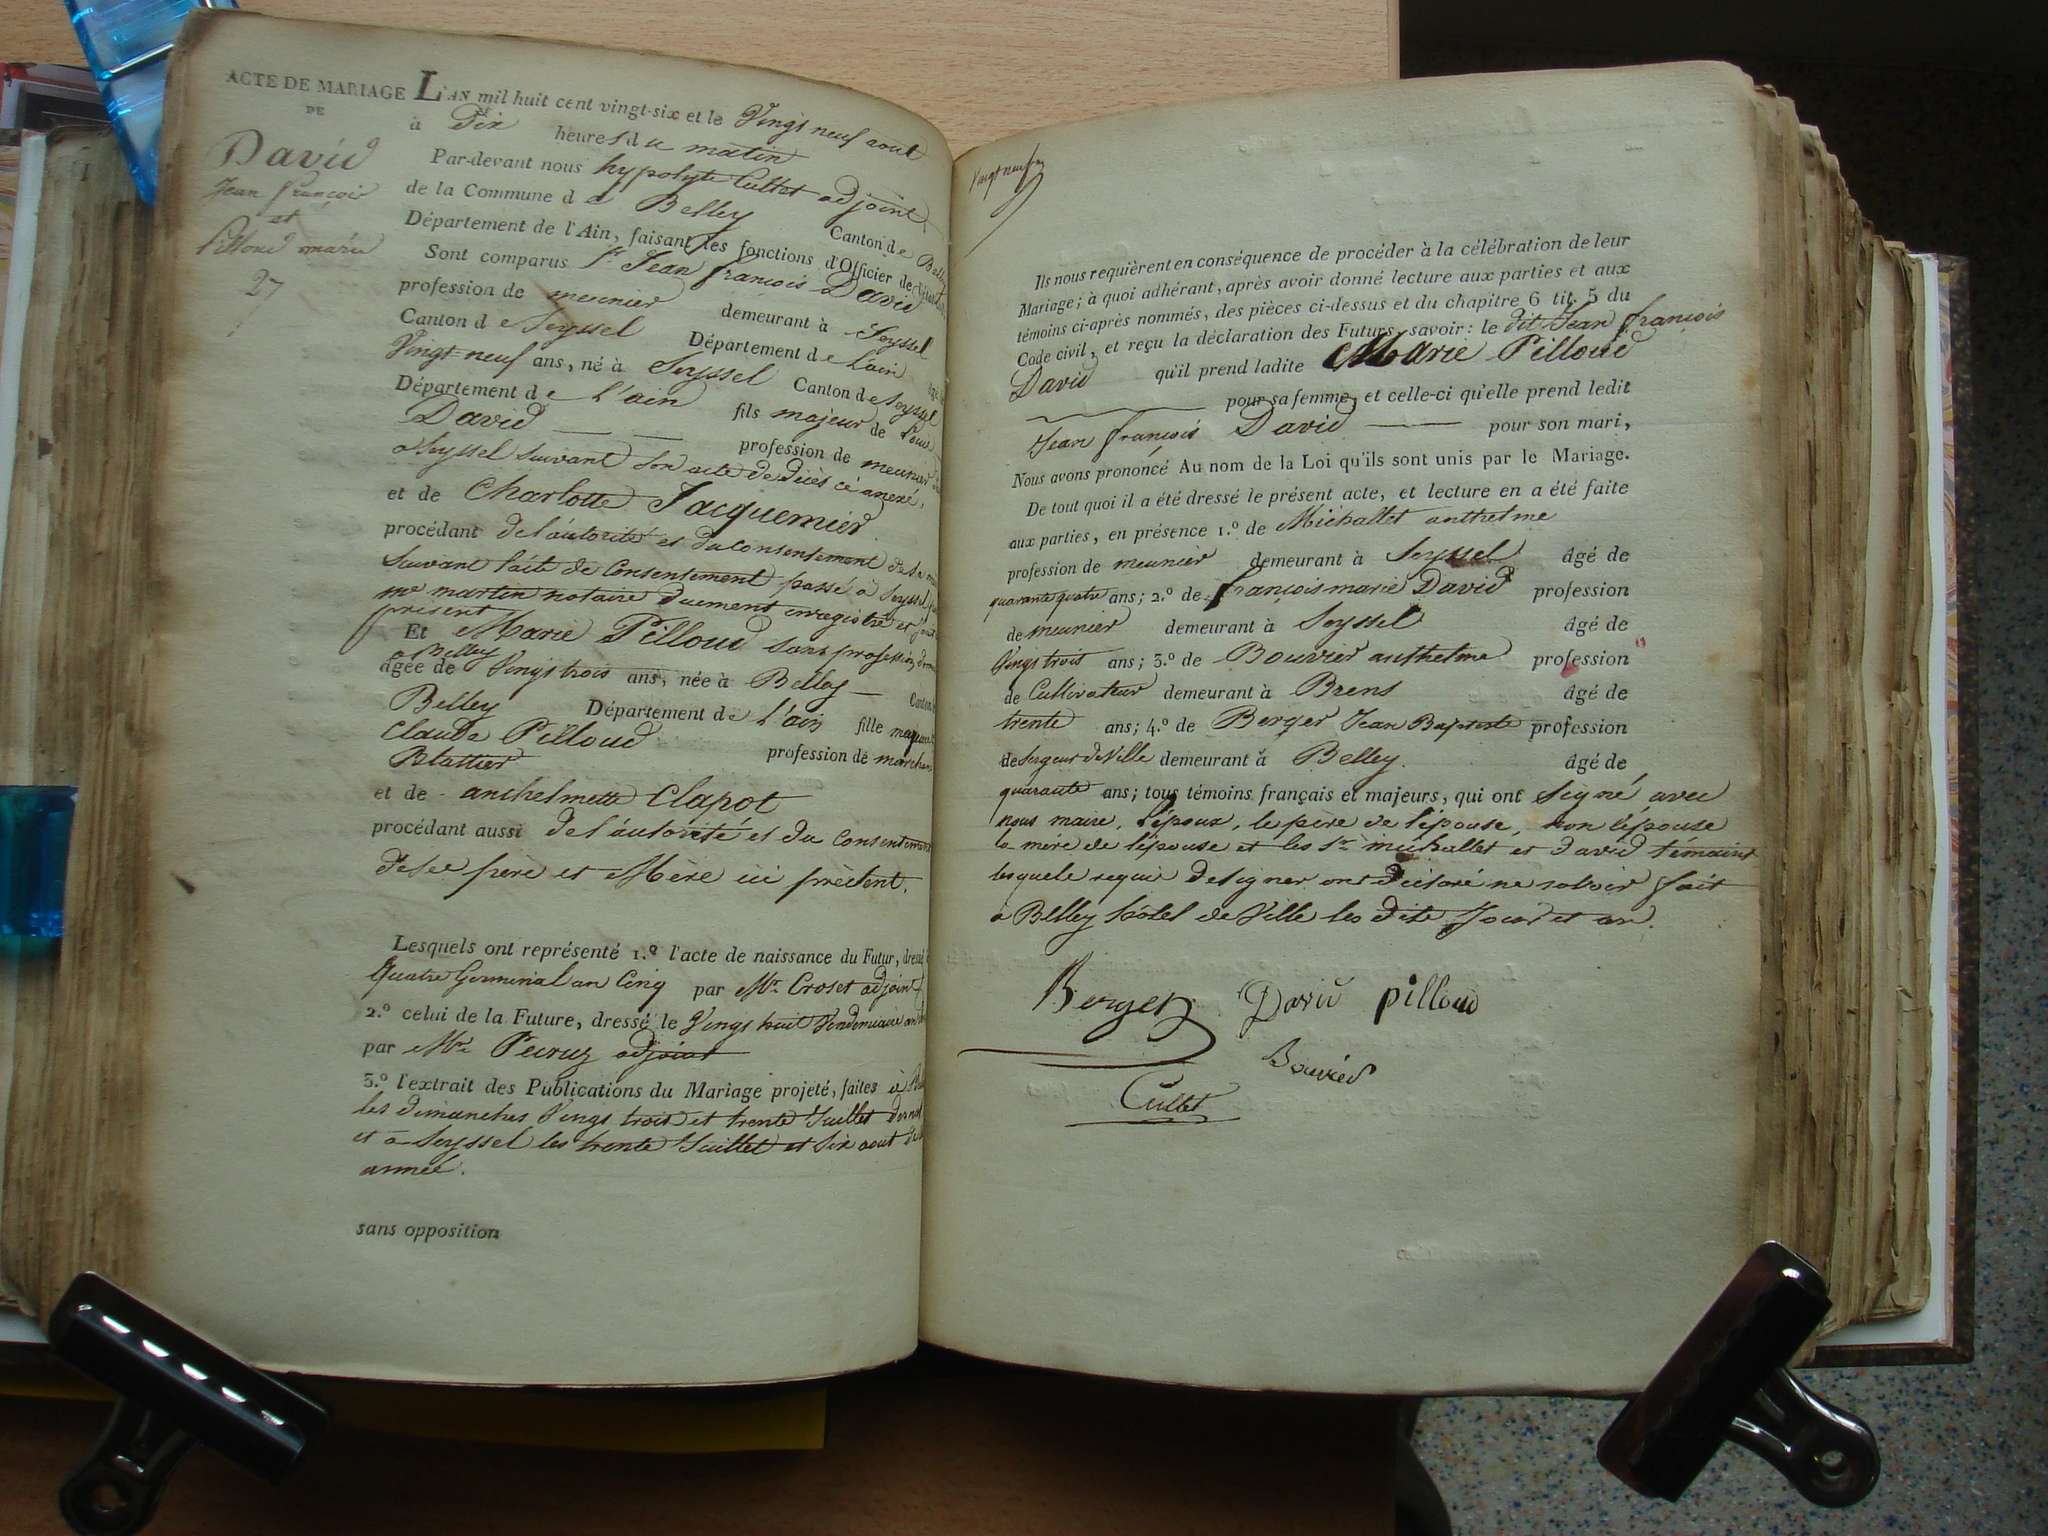 ACTE DE MARIAGE
DE
David
Jean françois
et
Pilloud marie
27
L'AN mil huit cent vingt-six et le Vingt neuf aout
à Dix heures du matin
Par-devant nous hypolyte Cullet adjoint
de la Commune de Belley Canton de Belley
Département de l'Ain, faisant les fonctions d'Officier de
Sont comparus Sr Jean françois David
profession de meunier demeurant à Seyssel
Canton de Seyssel Département de l'ain
Vingt-neuf ans, né à Seyssel Canton de Seyssel
Département de l'ain fils majeur de
David profession de meunier
a Seyssel suivant son acte de décès ci anexé,
et de Charlotte Jacquemier
procédant de l'autorité et du consentement de sa
suivant l'acte de Consentement passé à Seyssel
me martin notaire duement enregistré et
présent
Et Marie Pilloud sans profession
a Belley
âgée de Vingt trois ans, née à Belley Canton
Belley Département de l'ain fille majeure
Claude Pilloud
Blattier profession de marchand
et de anthelmette Clapot
procédant aussi de l'autorité et du consentement
de se père et Mère ici présent.
Lesquels ont représenté 1.º l'acte de naissance du Futur, dressé
Quatre Germinal an Cinq par Mr Croset adjoint
2.º celui de la Future, dressé le Vingt huit Vendemiaire an
par Mr Peeruz adjoint
3.º l'extrait des Publications du Mariage projeté, faites à
les dimanches Vingt trois et trente Juillet dernier
et a Seyssel les trente Juillet et Six aout
année.
sans opposition
Vingt neuf
Ils nous requièrent en conséquence de procéder à la célébration de leur
Mariage; à quoi adhérant, après avoir donné lecture aux parties et aux
témoins ci-après nommés, des pièces ci-dessus et du chapitre 6 tit. 5 du
Code civil, et reçu la déclaration des Futurs, savoir: le dit Jean françois
David qu'il prend ladite Marie Pilloud
pour sa femme, et celle-ci qu'elle prend ledit
Jean françois David pour son mari,
Nous avons prononcé Au nom de la Loi qu'ils sont unis par le Mariage.
De tout quoi il a été dressé le présent acte, et lecture en a été faite
aux parties, en présence 1.º de Michallet anthelme
profession de meunier demeurant à Seyssel âgé de
quarante quatre ans; 2.º de françois marie David profession
de meunier demeurant à Seyssel âgé de
Vingt trois ans; 3.º de Bouvier anthelme profession
de Cultivateur demeurant à Brens âgé de
trente ans; 4.º de Berger Jean Baptiste profession
de Sergeur de Ville demeurant à Belley. âgé de
quarante ans; tous témoins français et majeurs, qui ont Signé avec
nous maire, l'époux, le père de l'épouse, non l'épouse
la mère de l'épouse et les Srs michallet et david témoins
lesquels requis de signer ont déclaré ne savoir fait
a Belley hôtel de Ville les dits Jour et an.
Berger David pilloud
Bouvier
Cullet